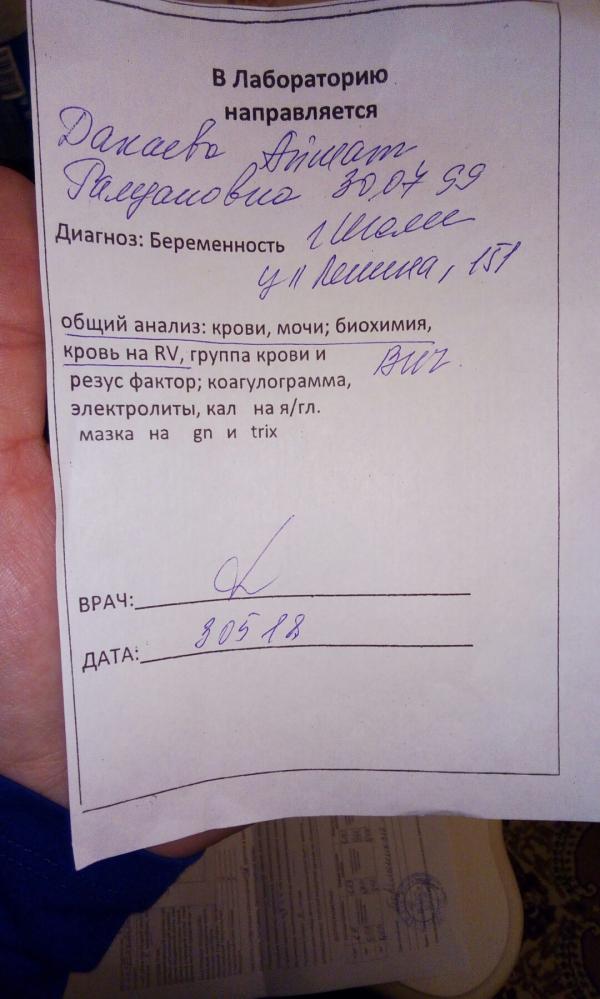 В Лабораторию
направляется
Дакаева Айшат
Рамзановна 30,07 99
Диагноз: Беременность г Шали
ул Ленина, 151
общий анализ: крови, мочи; биохимия,
кровь на RV, группа крови и ВИЧ.
резус фактор; коагулограмма,
электролиты, кал на я/гл.
мазка на gn и trix
ВРАЧ:
ДАТА: 30518